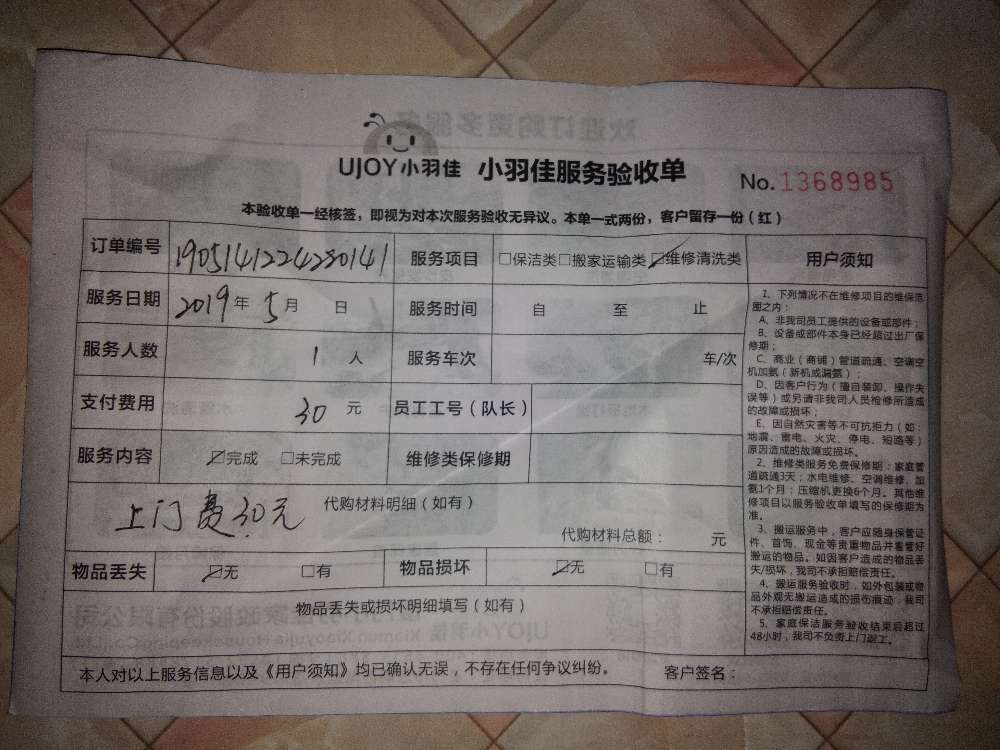 UJOY小羽佳 小羽佳服务验收单
No.1368985
本验收单一经核签，即视为对本次服务验收无异议。本单一式两份，客户留存一份（红）
订单编号 1905141224280141 服务项目 □保洁类□搬家运输类☑维修清洗类
服务日期 2019年5月 日 服务时间 自 至 止
服务人数 1人 服务车次 车/次
支付费用 30元 员工工号（队长）
服务内容 ☑完成 □未完成 维修类保修期
上门费30元 代购材料明细（如有）
代购材料总额： 元
物品丢失 ☑无 □有 物品损坏 ☑无 □有
物品丢失或损坏明细填写（如有）
本人对以上服务信息以及《用户须知》均已确认无误，不存在任何争议纠纷。 客户签名：
用户须知
1、下列情况不在维修项目的维保范
围之内：
A、非我司员工提供的设备或部件；
B、设备或部件本身已经超过出厂保
修期；
C、商业（商铺）管道疏通、空调空
机加氨（新机或漏氨）；
D、因客户行为（擅自装卸、操作失
误等）或另请非我司人员检修所造成
的故障或损坏；
E、因自然灾害等不可抗拒力（如：
地震、雷电、火灾、停电、短路等）
原因造成的故障或损坏。
2、维修类服务免费保修期：家庭管
道疏通3天；水电维修、空调维修、加
氨1个月；压缩机更换6个月。其他维
修项目以服务验收单填写的保修期为
准。
3、搬运服务中，客户应随身保管证
件、首饰、现金等贵重物品并看管好
搬运的物品。如因客户造成的物品丢
失/损坏，我司不承担赔偿责任。
4、搬运服务验收时，如外包装或物
品外观无搬运造成的损伤痕迹，我司
不承担赔偿责任。
5、家庭保洁服务验收结束后超过
48小时，我司不负责上门返工。